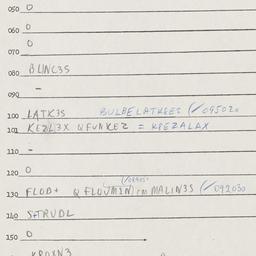 050 0
060 0
070 0
080 BLINC3S
090 -
100 LATK3S BULBELATKEES (/095020
101 KEZL3X Q FUNKEZ = KPEZALAX
110 -
120 0
130 FLOD+ Q FLOUMIN) cm MALIN3S (/092030
140 S+RUDL
150 0
KROXN3